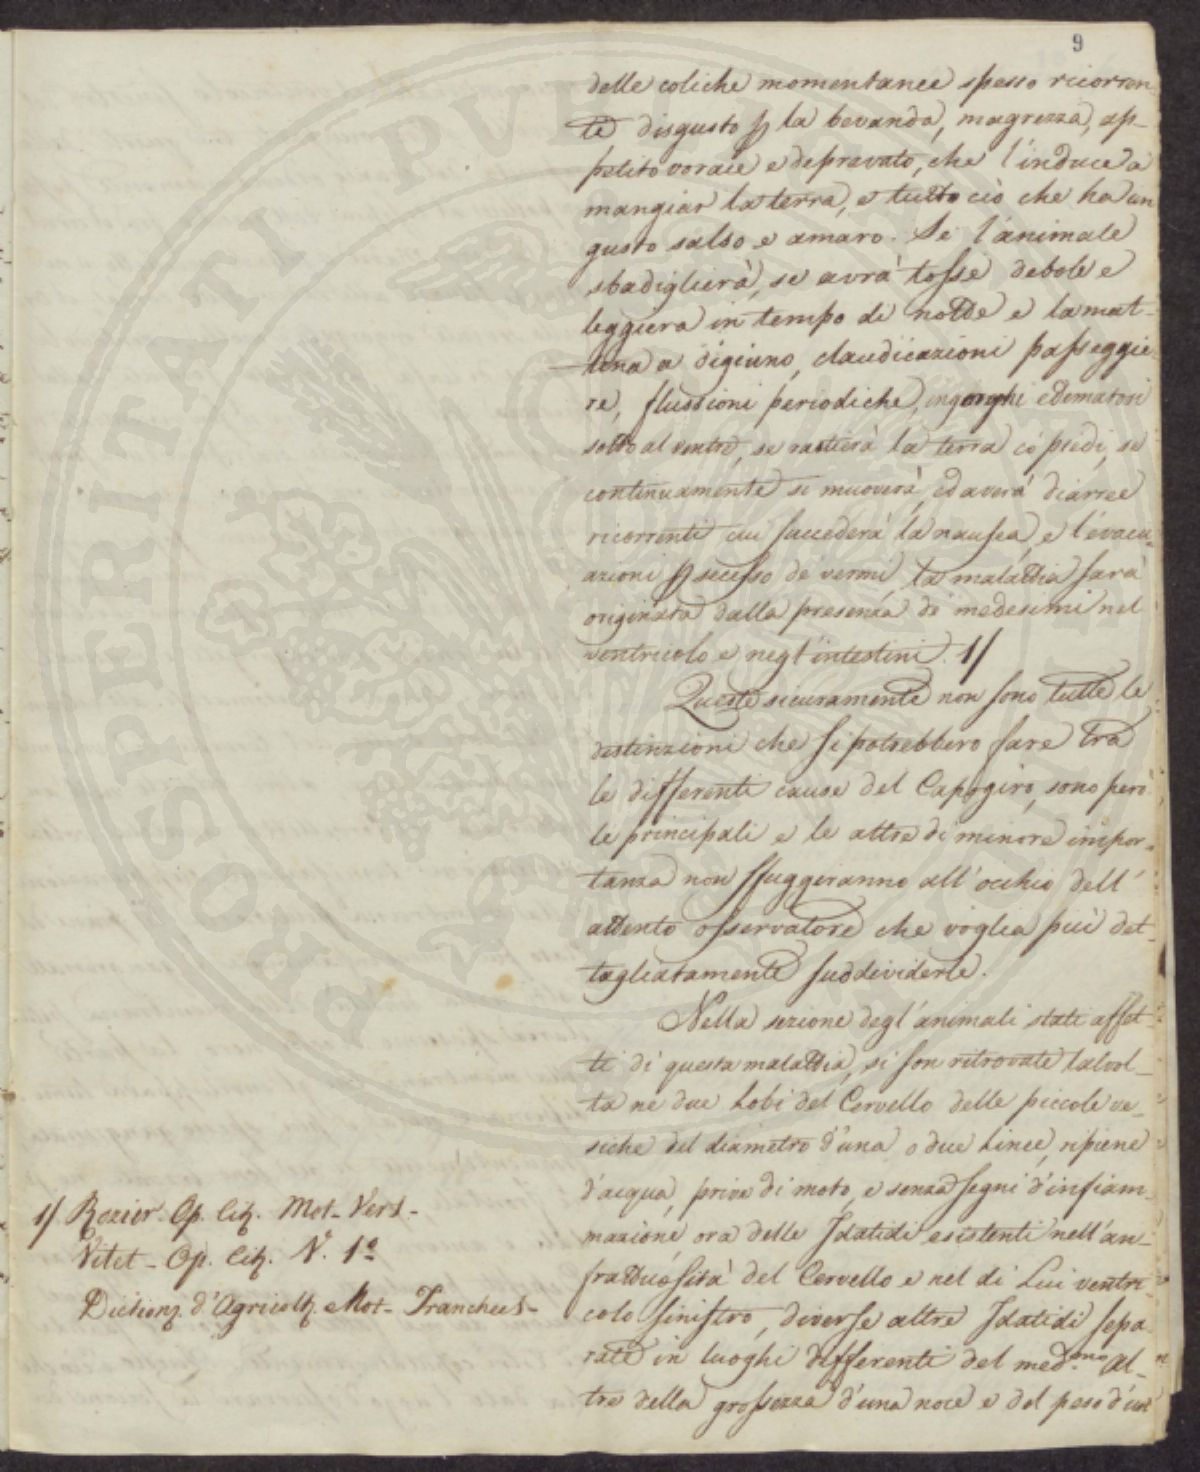 9
delle coliche momentanee spesso ricorren
te disgusto p la bevanda, magrezza, ap-
petito vorace e depravato, che l'induce a
mangiar la terra, e tutto ciò che ha un
gusto salso e amaro. Se l'animale
sbadiglierà, se avrà tosse debole e
leggiera in tempo di notte e la mat-
tina a digiuno, claudicazioni passeggie
re, flussioni periodiche, ingorghi edematosi
sotto al ventre, se rastierà la terra có piedi, se
continuamente si muoverà, ed averà diarree
ricorrenti cui succederà la nausea, e l'evacu-
azioni p secesso de vermi, la malattia sarà
originata dalla presenza di medesimi nel
ventricolo e negl'intestini. 1/
Queste sicuramente non sono tutte le
distinzioni che si potrebbero fare tra
le differenti cause del Capogiro, sono però
le principali e le altre di minore impor-
tanza non sfuggiranno all'occhio dell'
attento osservatore che voglia più det-
tagliatamente suddividerle.
Nella sezione degl'animali stati affet-
ti di questa malattia, si son ritrovate talvol-
ta ne due Lobi del Cervello delle piccole ve-
siche del diametro d'una o due Linee, ripiene
d'acqua, prive di moto, e senza segni d'infiam-
mazione, ora delle Idatidi esistenti nell'an-
frattuosità del Cervello e nel di Lui ventri
colo sinistro, diverse altre Idatidi sepa-
rate in luoghi differenti del med.mo Al-
tre della grossezza d'una noce e del peso d'un
1/ Rozier. Op. Cit. Mot. Vers.
Vitet. Op. Cit. V. 1º
Diction. d'Agricolt. Mot. Tranchees